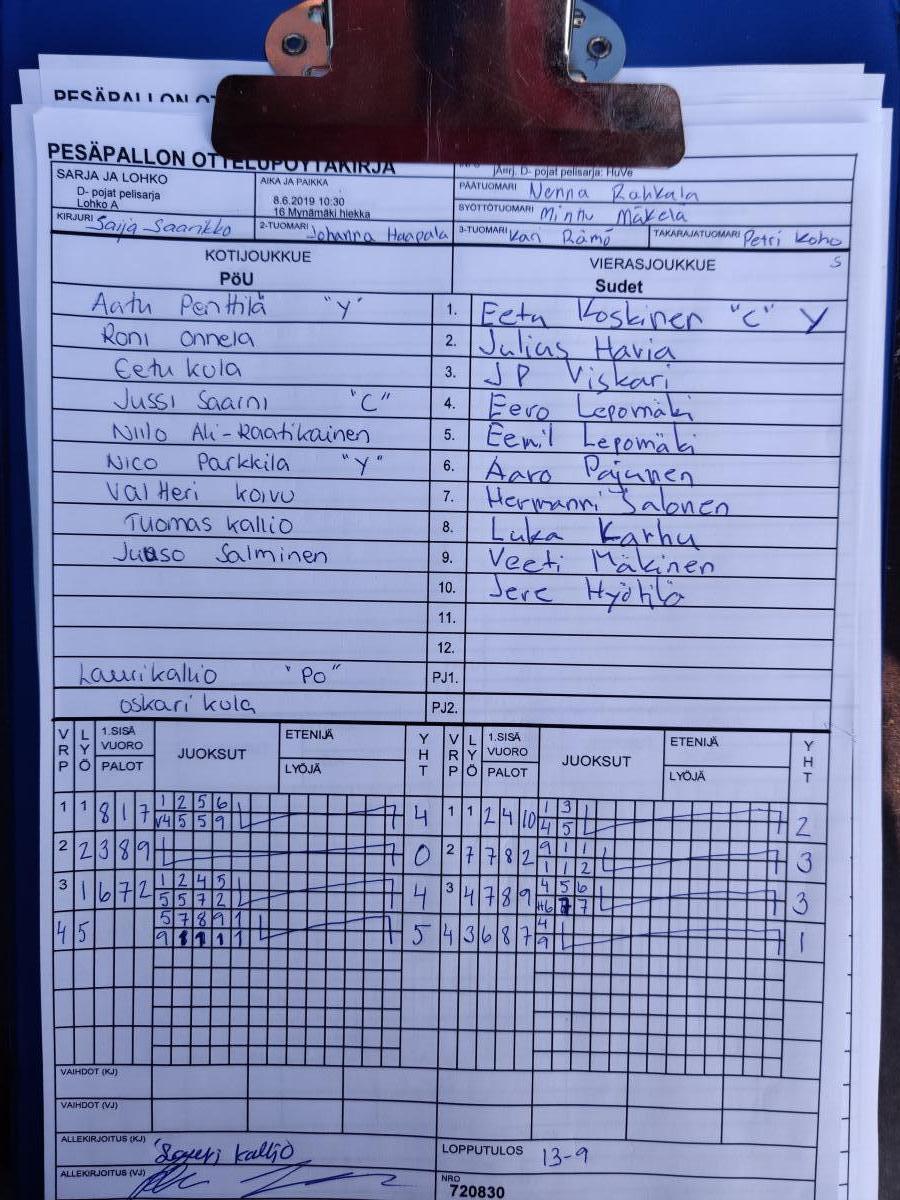 PESÄPALLON OT
PESÄPALLON OTTELUPÖYTÄKIRJA
SARJA JA LOHKO
D- pojat pelisarja
Lohko A
AIKA JA PAIKKA
8.6.2019 10:30
16 Mynämäki hiekka
D- pojat pelisarja: HuVe
PÄÄTUOMARI Nenna Rahkala
SYÖTTÖTUOMARI Minttu Mäkelä
KIRJURI Saija Saarikko
2-TUOMARI Johanna Haapala
3-TUOMARI Kari Rämö
TAKARAJATUOMARI Petri Koho
KOTIJOUKKUE
PöU
VIERASJOUKKUE
Sudet
S
Aatu Penttilä "Y" 1. Eetu Koskinen "C" Y
Roni Onnela 2. Julius Havia
Eetu Kula 3. JP Viskari
Jussi Saarni "C" 4. Eero Lepomäki
Niilo Ali-Raatikainen 5. Eemil Lepomäki
Nico Parkkila "Y" 6. Aaro Pajunen
Valtteri Koivu 7. Hermanni Salonen
Tuomas Kallio 8. Luka Karhu
Juuso Salminen 9. Veeti Mäkinen
10. Jere Hyötilä
11.
12.
Lauri Kallio "PO" PJ1.
Oskari Kula PJ2.
VRP LYÖ 1.SISÄ VUORO PALOT JUOKSUT ETENIJÄ LYÖJÄ YHT VRP LYÖ 1.SISÄ VUORO PALOT JUOKSUT ETENIJÄ LYÖJÄ YHT
1 1 8 1 7 1 2 5 6 4 1 1 2 4 10 1 3 2
V4 5 5 9 4 5
2 2 3 8 9 0 2 7 7 8 2 9 1 1 3
1 1 2
3 1 6 7 2 1 2 4 5 4 3 4 7 8 9 4 5 6 3
5 5 7 2 H6 7 7
4 5 5 7 8 9 1 5 4 3 6 8 7 4 1
9 1 1 1 1 9
VAIHDOT (KJ)
VAIHDOT (VJ)
ALLEKIRJOITUS (KJ) Lauri Kallio
LOPPUTULOS 13-9
ALLEKIRJOITUS (VJ)
NRO
720830